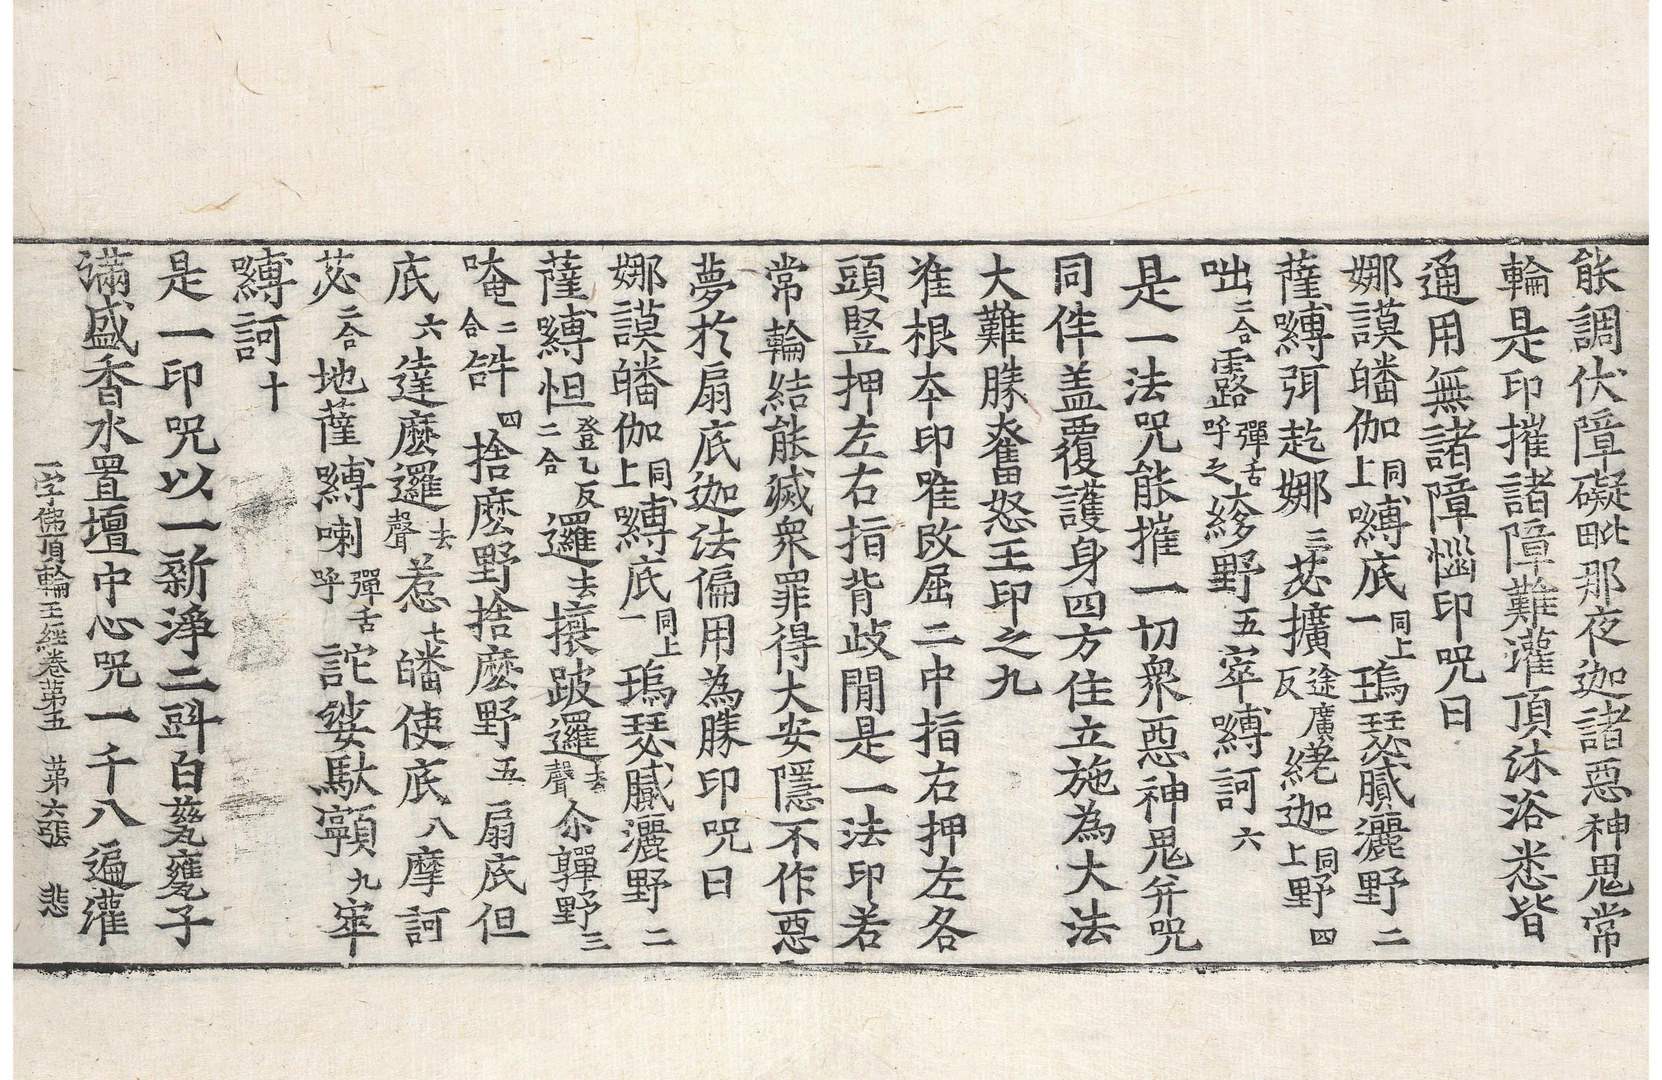 能調伏障礙毗那夜迦諸惡神鬼常
輪是印摧諸障難灌頂沐浴悉皆
通用無諸障惱印呪曰
娜謨皤伽上同嚩底一同上瑦瑟膩灑野二
薩嚩弭訖娜三苾擴途廣反繞迦上同野四
咄二合露彈舌呼之縿野五窣嚩訶六
是一法呪能摧一切衆惡神鬼并呪
同伴盖覆護身四方住立施為大法
大難勝奮怒王印之九
准根本印唯改屈二中指右押左各
頭竪押左右指背歧閒是一法印若
常輪結能滅衆罪得大安隱不作惡
夢於扇底迦法偏用為勝印呪曰
娜謨皤伽上同嚩底一同上瑦瑟膩灑野二
薩嚩怛登乙反二合邏去攘跛邏去聲尒野三
唵二合𤙖四捨麽野捨麽野五扇底但
底六達麽邏去聲惹七皤使底八摩訶
苾二合地薩嚩喇彈舌呼詑娑馱顊九窣
嚩訶十
是一印呪以一新淨二㪷白甆甕子
滿盛香水置壇中心呪一千八遍灌
一字佛頂輪王經卷第五　第六張　悲